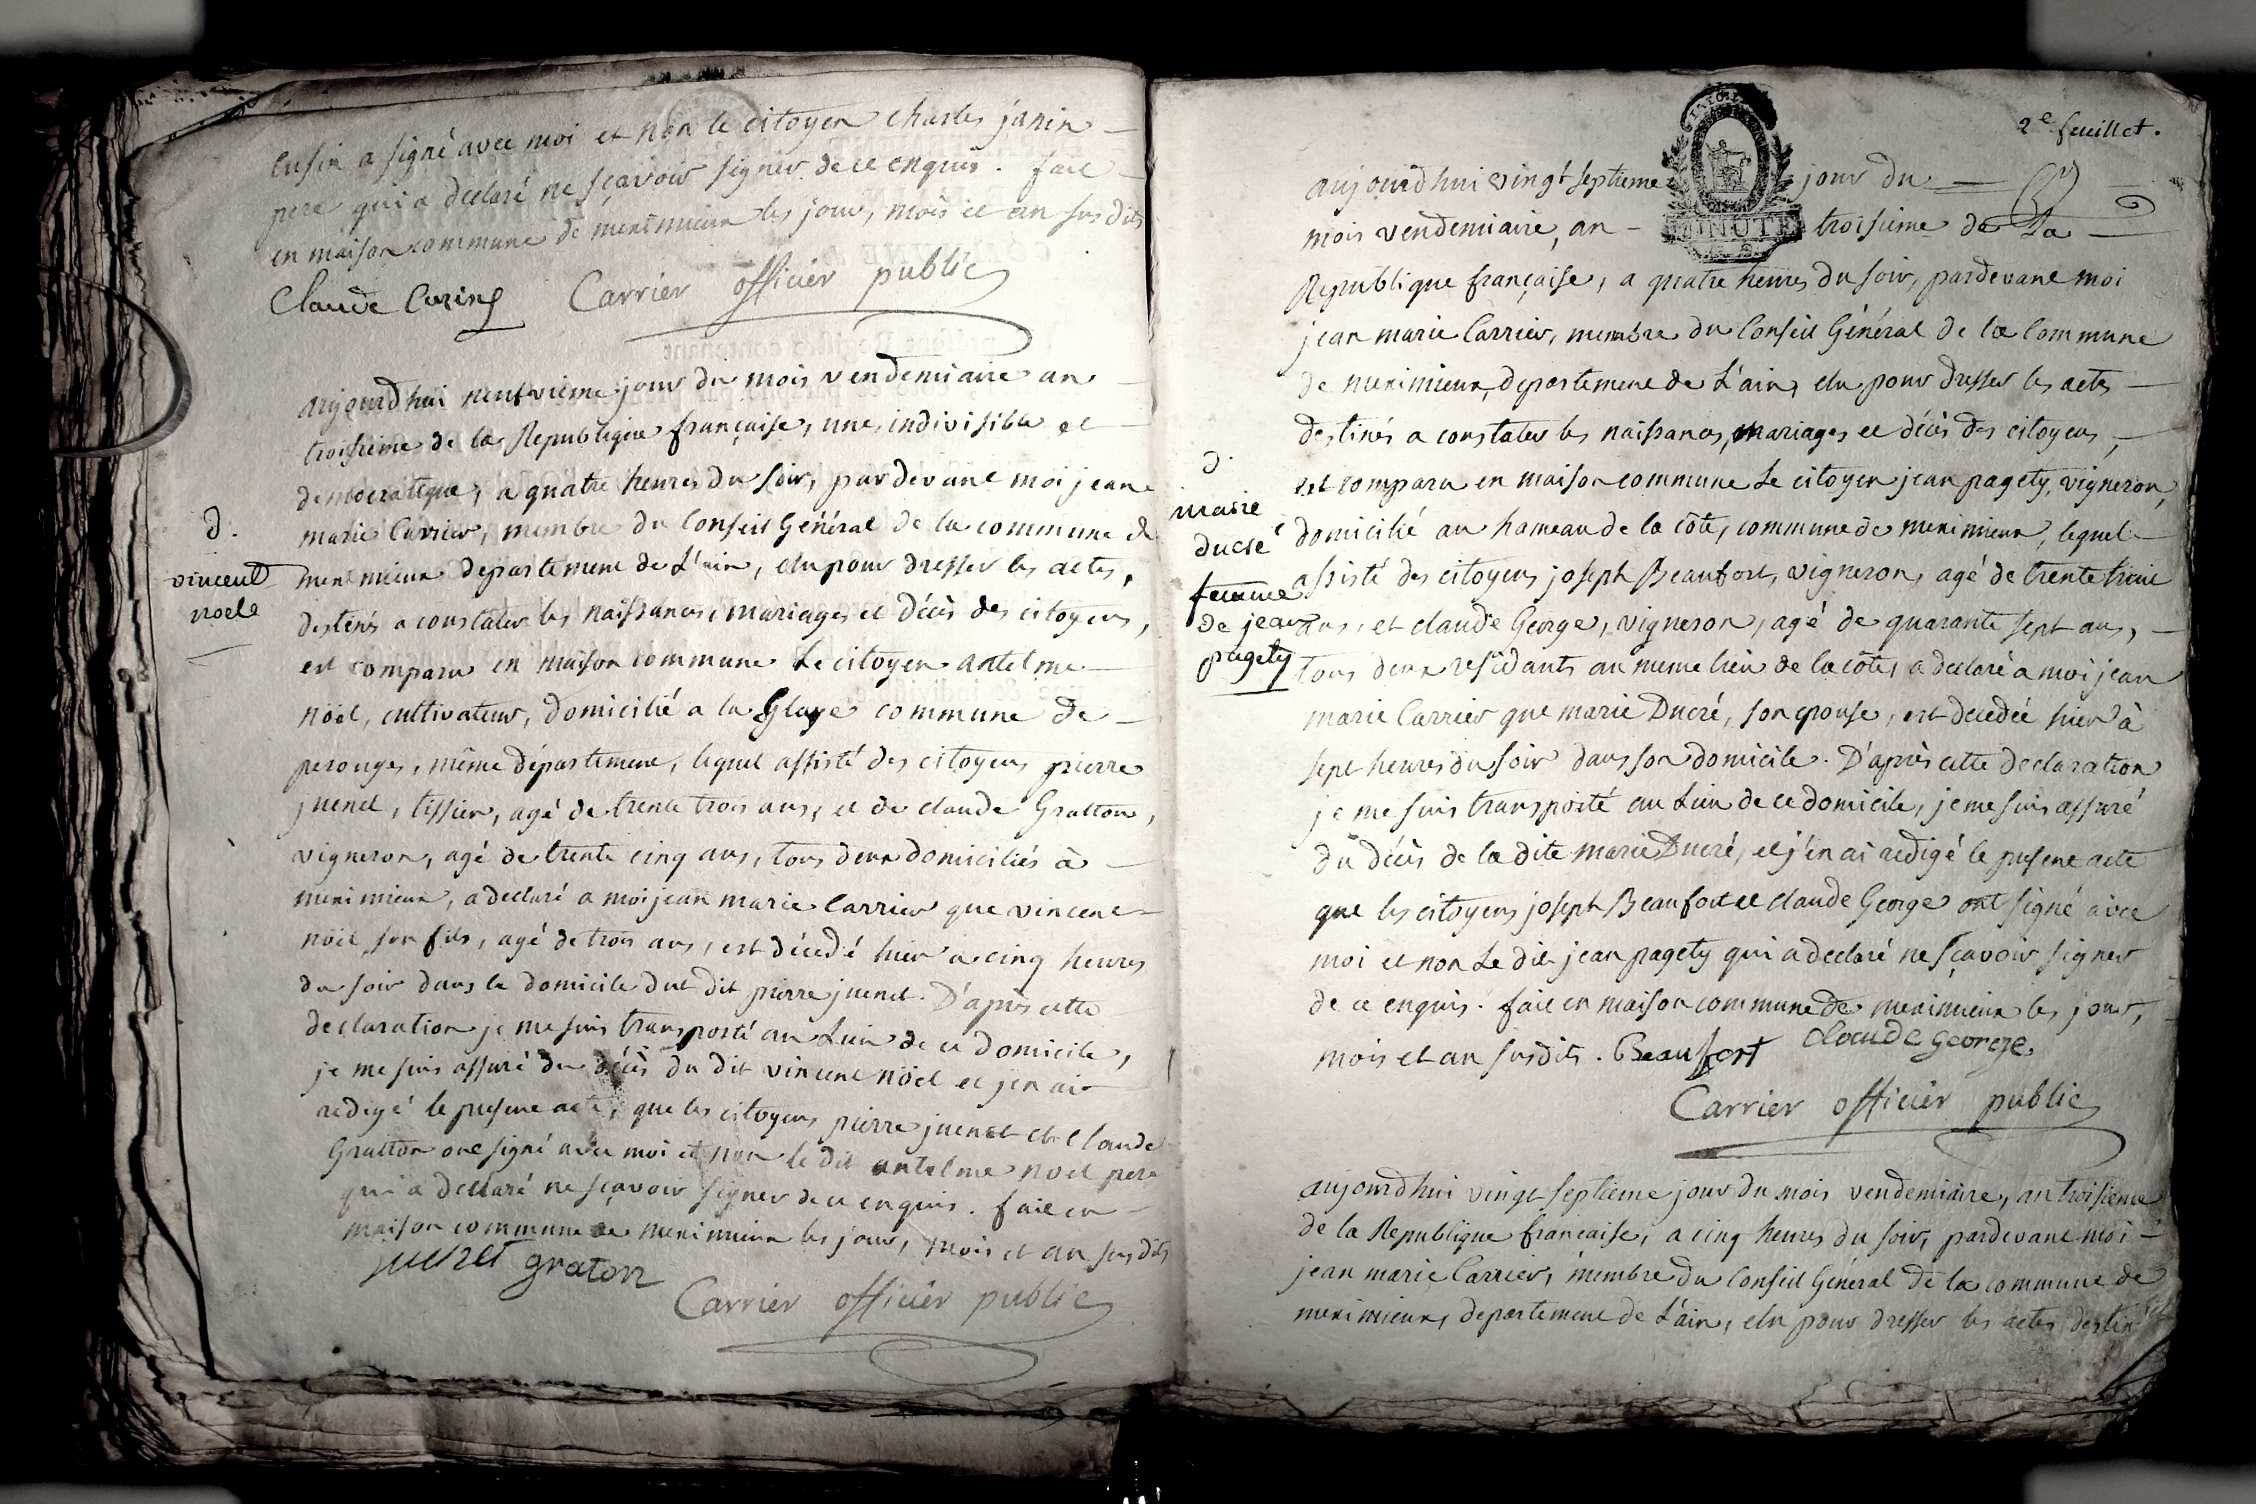 Cusin a signé avec moi et non le citoyen charles janin
pere qui a declaré ne sçavoir signer de ce enquis. fait
en maison commune de meximieux les jour, mois et an susdits
Claude Cusin Carrier officier public
aujourd'hui neufvieme jour du mois vendemiaire an
troisieme de la Republique française, une, indivisible et
democratique, a quatre heures du soir, pardevant moi jean
marie Carrier, membre du Conseil Général de la commune de
meximieux departement de L'ain, elu pour dresser les actes,
destinés a constater les naissances, mariages et décès des citoyens,
est comparu en maison commune Le citoyen antelme
d.
vincent
noel
noël, cultivateur, domicilié a la Glaye commune de
perouges, même département, lequel assisté des citoyens pierre
juenet, tissier, agé de trente trois ans, et de claude Gratton,
vigneron, agé de trente cinq ans, tous deux domiciliés à
meximieux, a declaré a moi jean marie Carrier que vincent
noël, son fils, agé de trois ans, est décedé hier a cinq heures
du soir dans le domicile du dit pierre juenet. D'après cette
declaration je me suis transporté au Lieu de ce domicile,
je me suis assuré du décès du dit vincent noël et j'en ai
redigé le present acte, que les citoyens pierre juenet et Claude
Gratton ont signé avec moi et non le dit antelme noel pere
qui a declaré ne sçavoir signer de ce enquis. fait en
maison commune de meximieux les jour, mois et an susdits
juenet graton
Carrier officier public
2e feuillet.
aujourd'hui vingt septieme jour du
MINUTE
mois vendemiaire, an troisieme de La
Republique française, a quatre heures du soir, pardevant moi
jean marie Carrier, membre du Conseil Général de la Commune
de meximieux, departement de L'ain, elu pour dresser les actes
destinés a constater les naissances, mariages et décès des citoyens,
est comparu en maison commune Le citoyen jean pagety, vigneron,
domicilié au hameau de la côte, commune de meximieux, lequel
assisté des citoyens joseph Beaufort, vigneron, agé de trente trois
ans, et claude George, vigneron, agé de quarante sept ans,
tous deux residants au meme lieu de la côte, a declaré a moi jean
d.
marie
ducré
femme
de jean
pagety
marie Carrier que marie Ducré, son epouse, est decedée hier à
sept heures du soir dans son domicile. D'après cette declaration
je me suis transporté au Lieu de ce domicile, je me suis assuré
du décès de la dite marie Ducré, et j'en ai redigé le present acte
que les citoyens joseph Beaufort et claude George ont signé avec
moi et non Le dit jean pagety qui a declaré ne sçavoir signer
de ce enquis. fait en maison commune de meximieux les jour,
mois et an susdits. Beaufort claude george
Carrier officier public
aujourd'hui vingt septieme jour du mois vendemiaire, an troisieme
de la Republique francaise, a cinq heures du soir, pardevant moi
jean marie Carrier, membre du Conseil Général de la commune de
meximieux, departement de L'ain, elu pour dresser les actes destinés